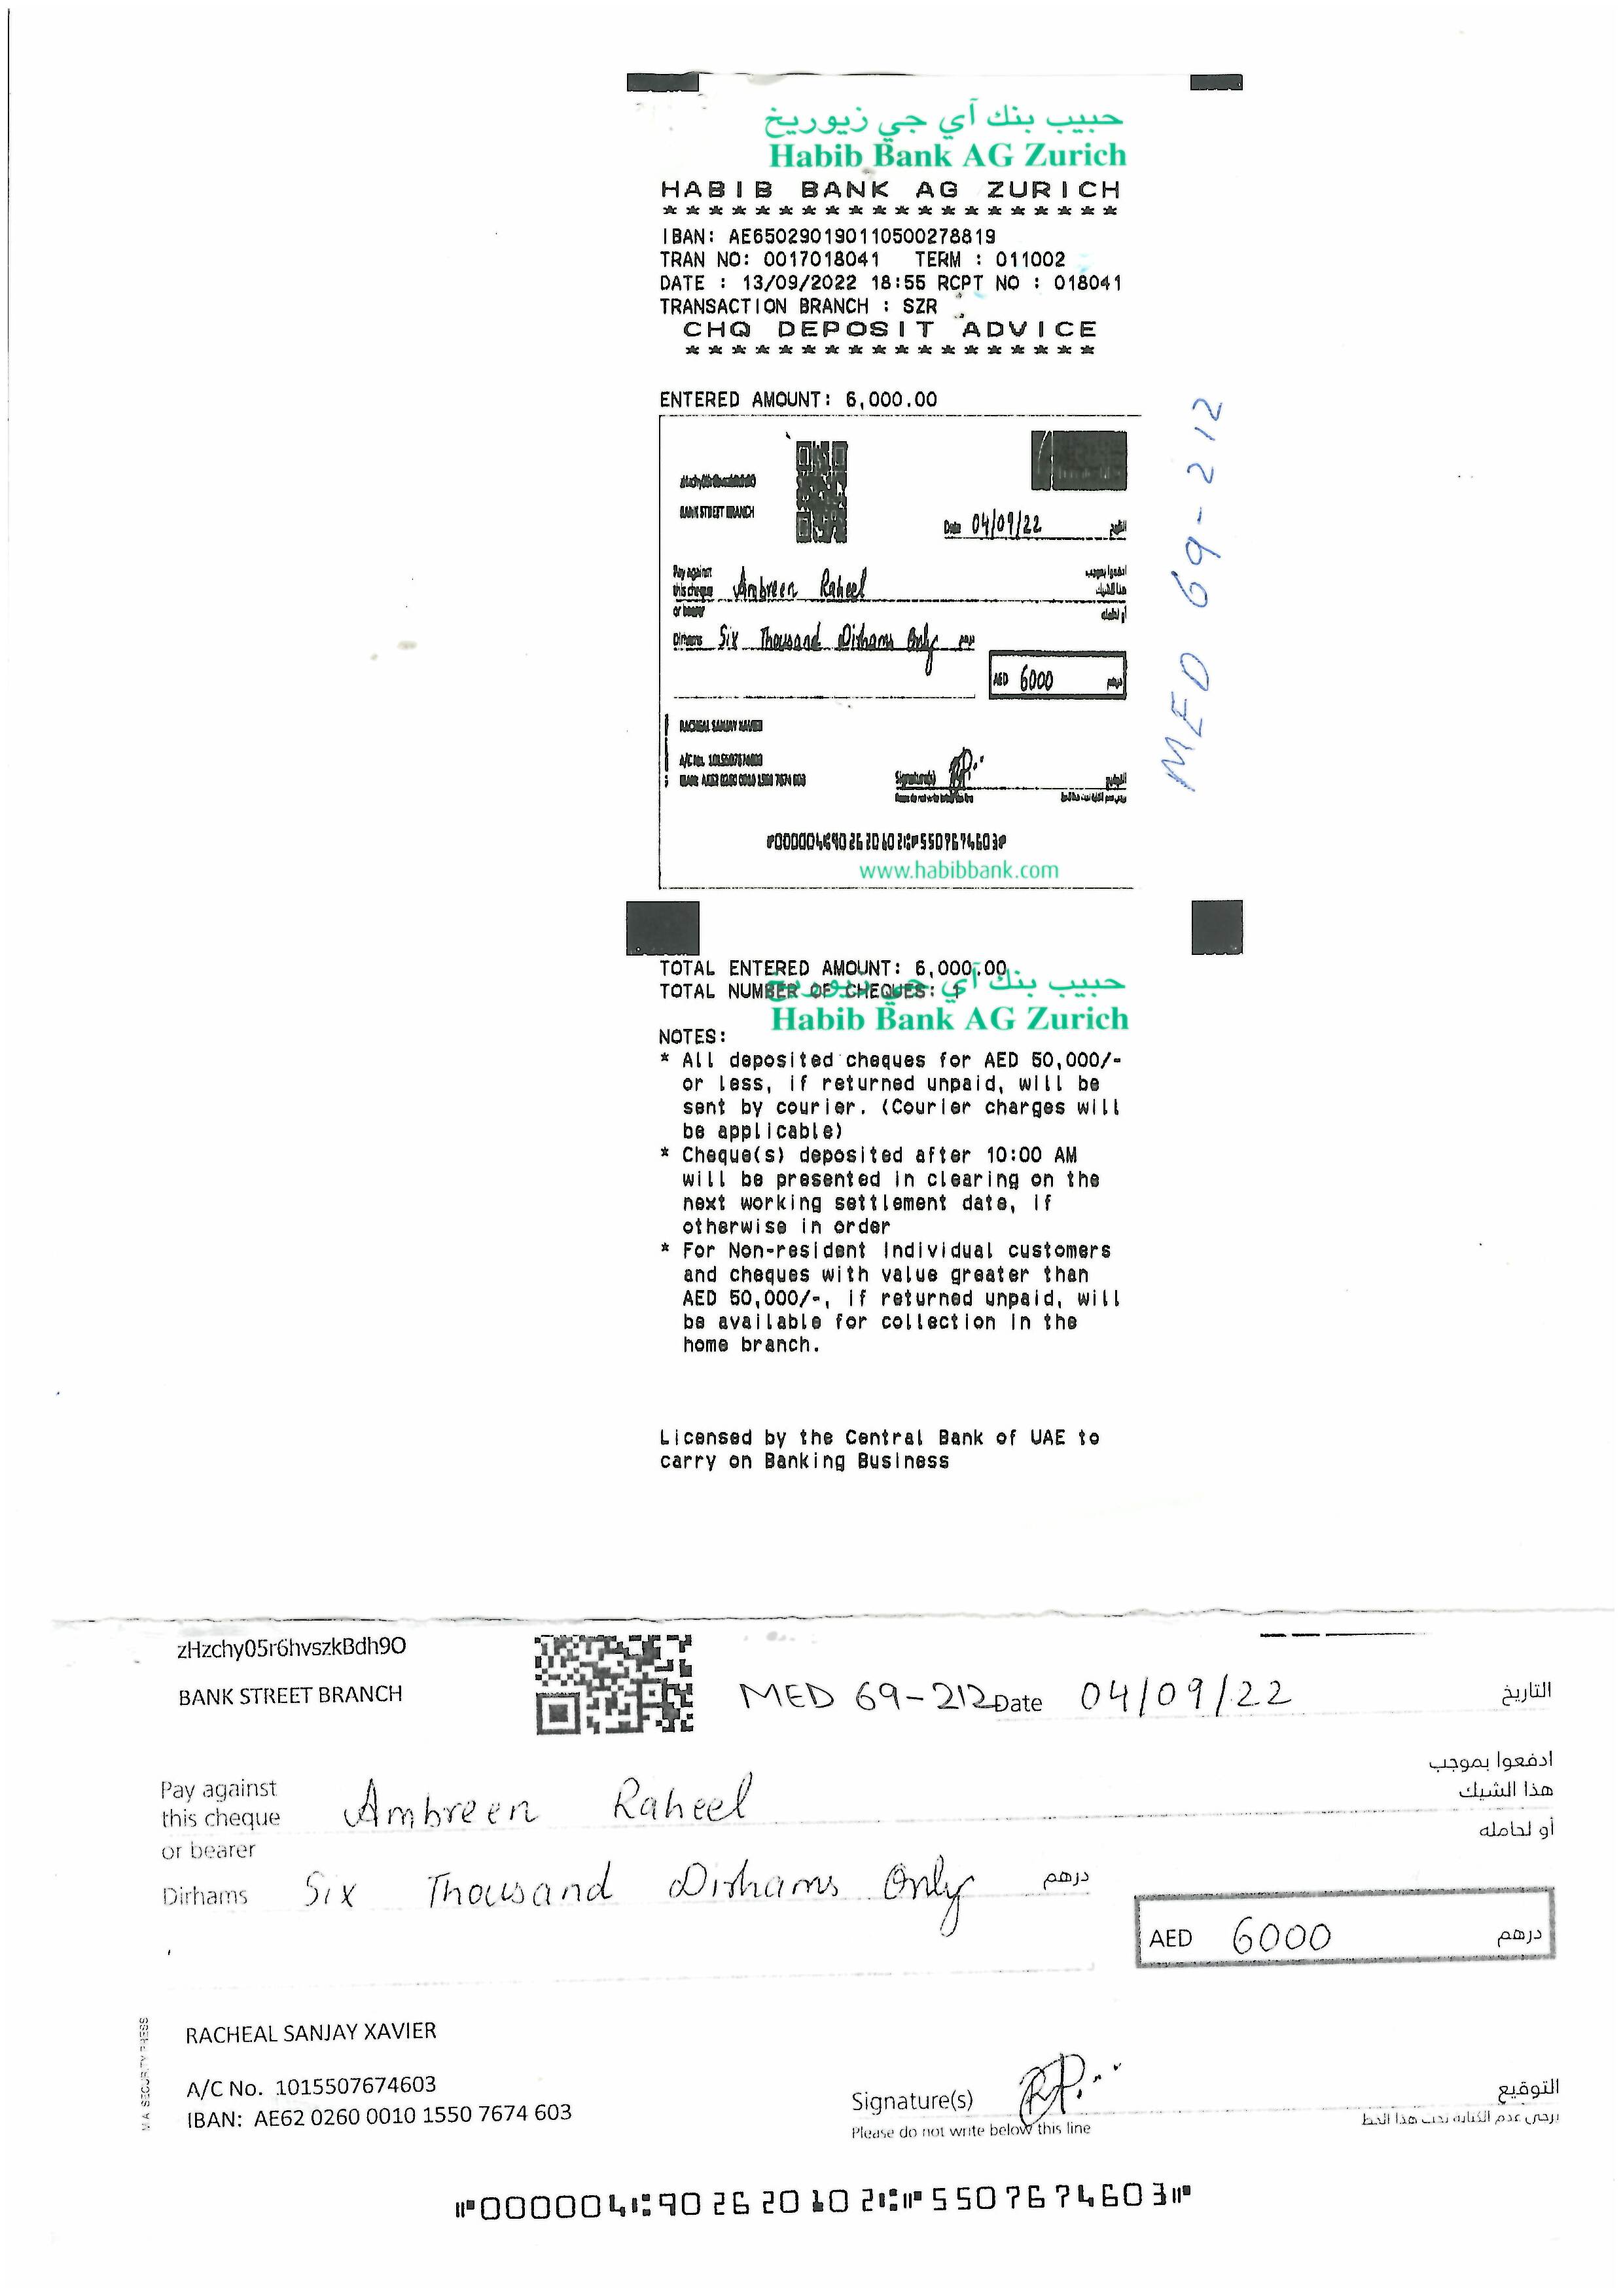 حبيب بنك آي جي زيوريخ
Habib Bank AG Zurich
HABIB BANK AG ZURICH
********************
IBAN: AE650290190110500278819
TRAN NO: 0017018041 TERM : 011002
DATE : 13/09/2022 18:55 RCPT NO : 018041
TRANSACTION BRANCH : SZR
CHQ DEPOSIT ADVICE
******************
ENTERED AMOUNT: 6,000.00
MED 69-212
BANK STREET BRANCH
Date 04/09/22 التاريخ
Pay against ادفعوا بموجب
this cheque Ambreen Raheel هذا الشيك
or bearer أو لحامله
Dirhams Six Thousand Dirhams Only درهم
AED 6000 درهم
RACHEAL SANJAY XAVIER
A/C No. 1015507674603
IBAN: AE62 0260 0010 1550 7674 603
Signature(s) التوقيع
Please do not write below this line
⑈000004⑆902620102⑆⑈5507674603⑈
www.habibbank.com
TOTAL ENTERED AMOUNT: 6,000.00
TOTAL NUMBER OF CHEQUES: 1
حبيب بنك آي جي زيوريخ
Habib Bank AG Zurich
NOTES:
* All deposited cheques for AED 50,000/-
or less, if returned unpaid, will be
sent by courier. (Courier charges will
be applicable)
* Cheque(s) deposited after 10:00 AM
will be presented in clearing on the
next working settlement date, if
otherwise in order
* For Non-resident Individual customers
and cheques with value greater than
AED 50,000/-, if returned unpaid, will
be available for collection in the
home branch.
Licensed by the Central Bank of UAE to
carry on Banking Business
zHzchy05r6hvszkBdh9O
BANK STREET BRANCH
MED 69-212 Date 04/09/22 التاريخ
Pay against ادفعوا بموجب
this cheque Ambreen Raheel هذا الشيك
or bearer أو لحامله
Dirhams Six Thousand Dirhams Only درهم
AED 6000 درهم
RACHEAL SANJAY XAVIER
A/C No. 1015507674603
IBAN: AE62 0260 0010 1550 7674 603
Signature(s) التوقيع
Please do not write below this line يرجى عدم الكتابة تحت هذا الخط
SECURITY PRESS
⑈000004⑆902620102⑆⑈5507674603⑈